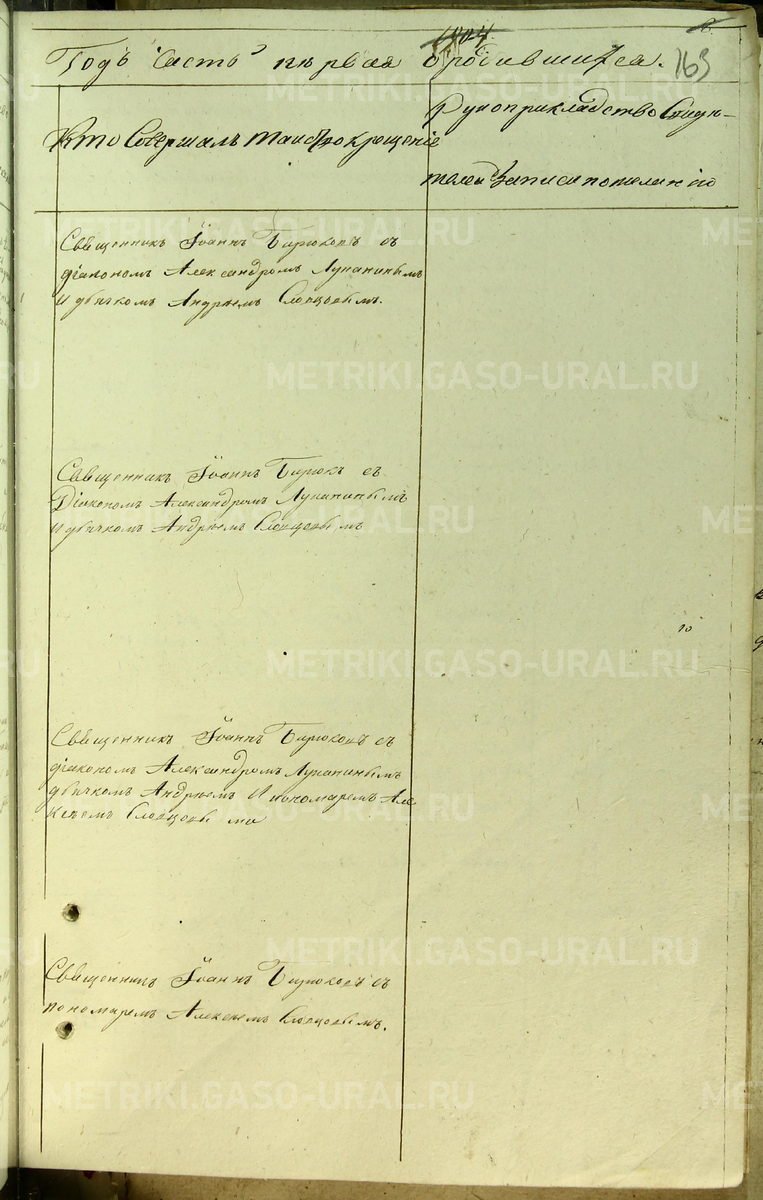 163
Годъ часть первая о родившихся.
Кто Совершалъ таинство крещеніе
Рукоприкладство Свидѣ-
телей Записи по желанію
Священникъ Іоаннъ Бирюковъ съ
діакономъ Александромъ Лупанинымъ
и дьячкомъ Андреемъ Словцовымъ.
Священникъ Іоаннъ Бирюковъ съ
Діакономъ Александромъ Лупанинымъ
и дьячкомъ Андреемъ Словцовымъ
Священникъ Іоаннъ Бирюковъ съ
діакономъ Александромъ Лупанинымъ
дьячкомъ Андреемъ и пономаремъ Але
ксѣемъ Словцовыми
Священникъ Іоаннъ Бирюковъ съ
пономаремъ Алексѣемъ Словцовымъ.
METRIKI.GASO-URAL.RU